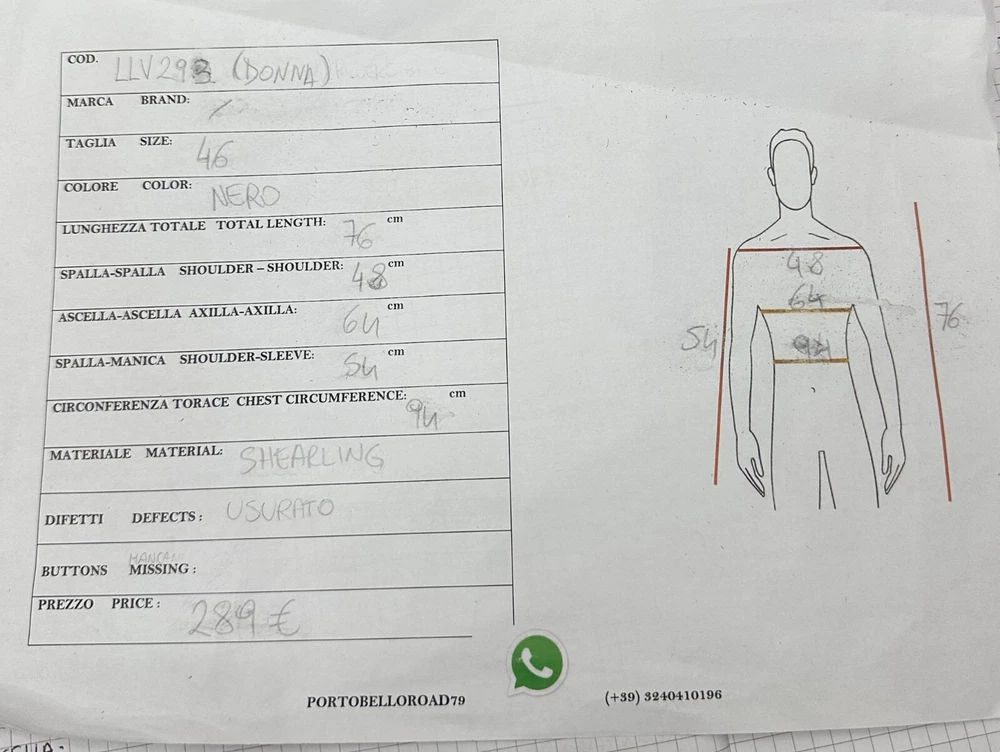 COD. LLV293 (DONNA)
MARCA BRAND: /
TAGLIA SIZE: 46
COLORE COLOR: NERO
LUNGHEZZA TOTALE TOTAL LENGTH: 76 cm
SPALLA-SPALLA SHOULDER – SHOULDER: 48 cm
ASCELLA-ASCELLA AXILLA-AXILLA: 64 cm
SPALLA-MANICA SHOULDER-SLEEVE: 54 cm
CIRCONFERENZA TORACE CHEST CIRCUMFERENCE: 94 cm
MATERIALE MATERIAL: SHEARLING
DIFETTI DEFECTS: USURATO
BUTTONS MISSING:
PREZZO PRICE: 289 €
48
64
94
54
76
PORTOBELLOROAD79
(+39) 3240410196